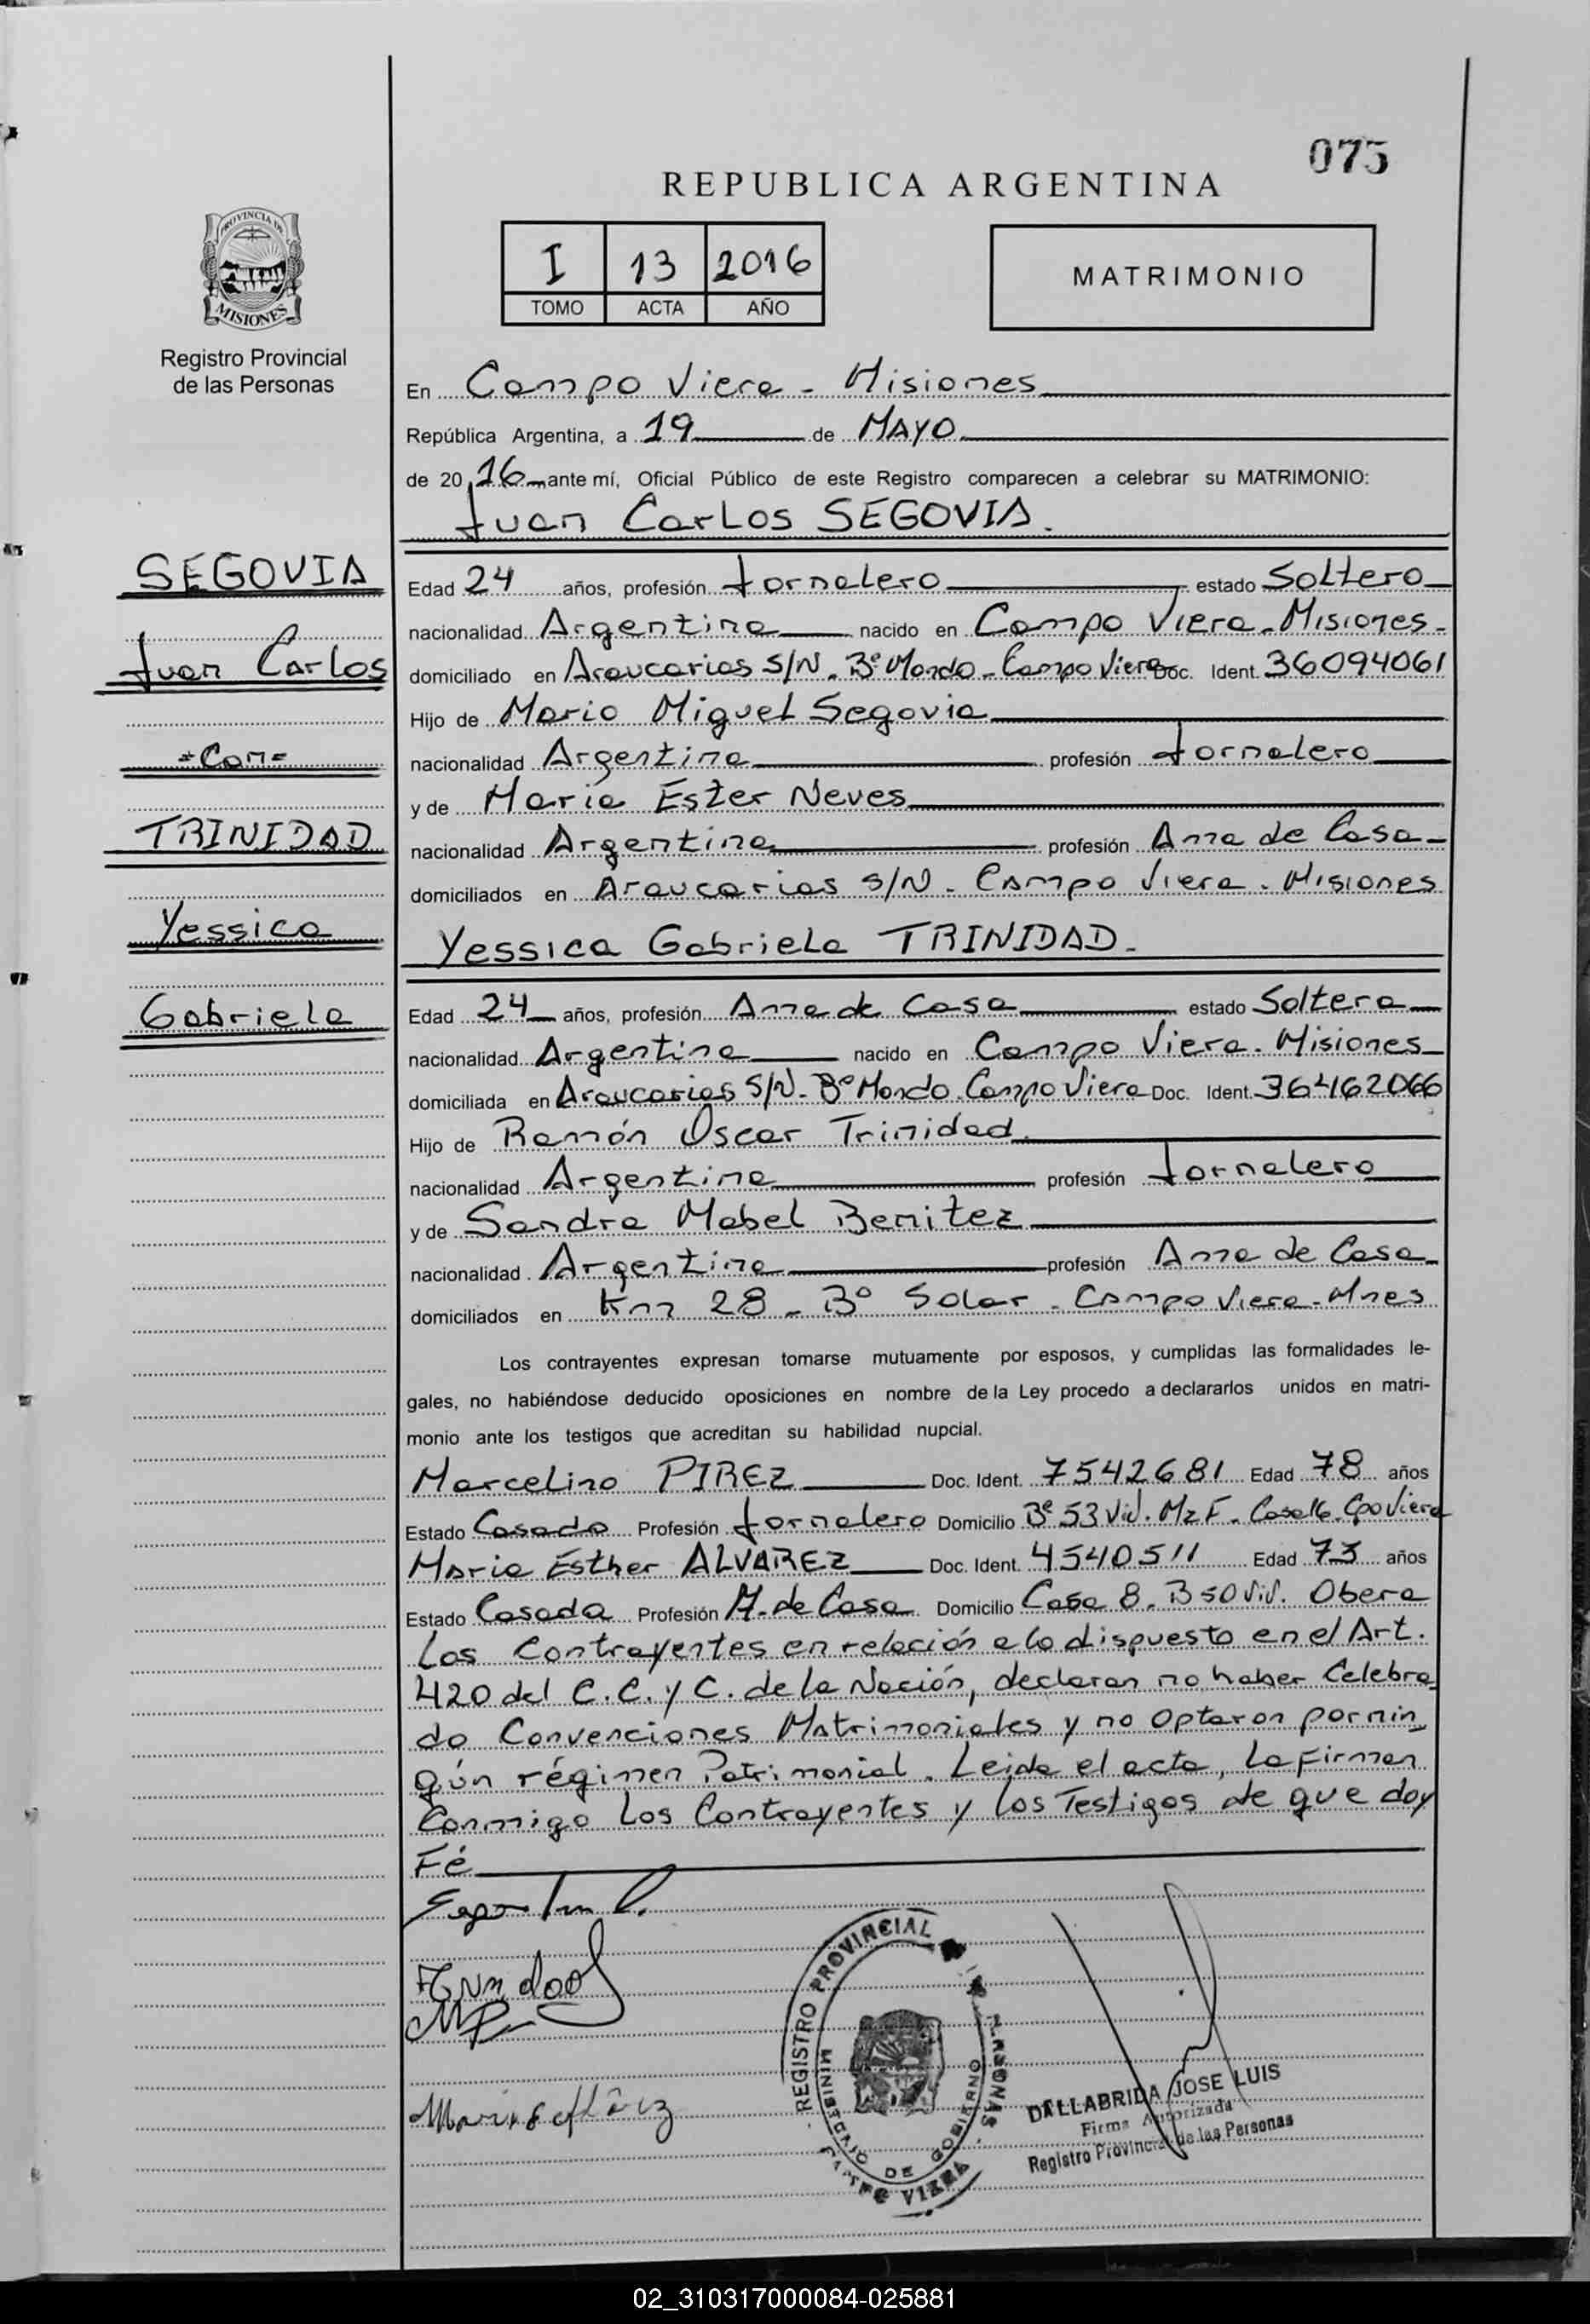 075
REPUBLICA ARGENTINA
PROVINCIA DE
MISIONES
Registro Provincial
de las Personas
I 13 2016
TOMO ACTA AÑO
MATRIMONIO
En Campo Viera - Misiones
República Argentina, a 19 de MAYO
de 20 16 ante mí, Oficial Público de este Registro comparecen a celebrar su MATRIMONIO:
Juan Carlos SEGOVIA.
SEGOVIA
Juan Carlos
=Con=
TRINIDAD
Yessica
Gabriela
Edad 24 años, profesión Jornalero estado Soltero
nacionalidad Argentina nacido en Campo Viera - Misiones -
domiciliado en Araucarias S/N - Bº Mondo - Campo Viera Doc. Ident. 36094061
Hijo de Mario Miguel Segovia
nacionalidad Argentina profesión Jornalero
y de María Ester Neves
nacionalidad Argentina profesión Ama de Casa -
domiciliados en Araucarias S/N - Campo Viera - Misiones
Yessica Gabriela TRINIDAD -
Edad 24 años, profesión Ama de Casa estado Soltera
nacionalidad Argentina nacido en Campo Viera - Misiones
domiciliada en Araucarias S/N - Bº Mondo - Campo Viera Doc. Ident. 36462066
Hijo de Ramón Oscar Trinidad
nacionalidad Argentina profesión Jornalero
y de Sandra Mabel Benitez
nacionalidad Argentina profesión Ama de Casa
domiciliados en Km 28 - Bº Solar - Campo Viera - Mnes
Los contrayentes expresan tomarse mutuamente por esposos, y cumplidas las formalidades le-
gales, no habiéndose deducido oposiciones en nombre de la Ley procedo a declararlos unidos en matri-
monio ante los testigos que acreditan su habilidad nupcial.
Marcelino PIREZ Doc. Ident. 7542681 Edad 78 años
Estado Casado Profesión Jornalero Domicilio Bº 53 Viv. Mz F - Casa 16 - Cpo Viera
Maria Esther ALVAREZ Doc. Ident. 4540511 Edad 73 años
Estado Casada Profesión A. de Casa Domicilio Casa 8 - B 50 Viv. Obera
Los Contrayentes en relación a lo dispuesto en el Art.
420 del C.C. y C. de la Nación, declaran no haber Celebra
do Convenciones Matrimoniales y no Optaron por nin
gún régimen Patrimonial. Leida el acta, la Firman
Conmigo Los Contrayentes y los Testigos de que doy
Fé
REGISTRO PROVINCIAL PERSONAS
MINISTERIO DE GOBIERNO
VIERA
DALLABRIDA JOSE LUIS
Firma Autorizada
Registro Provincial de las Personas
02_310317000084-025881